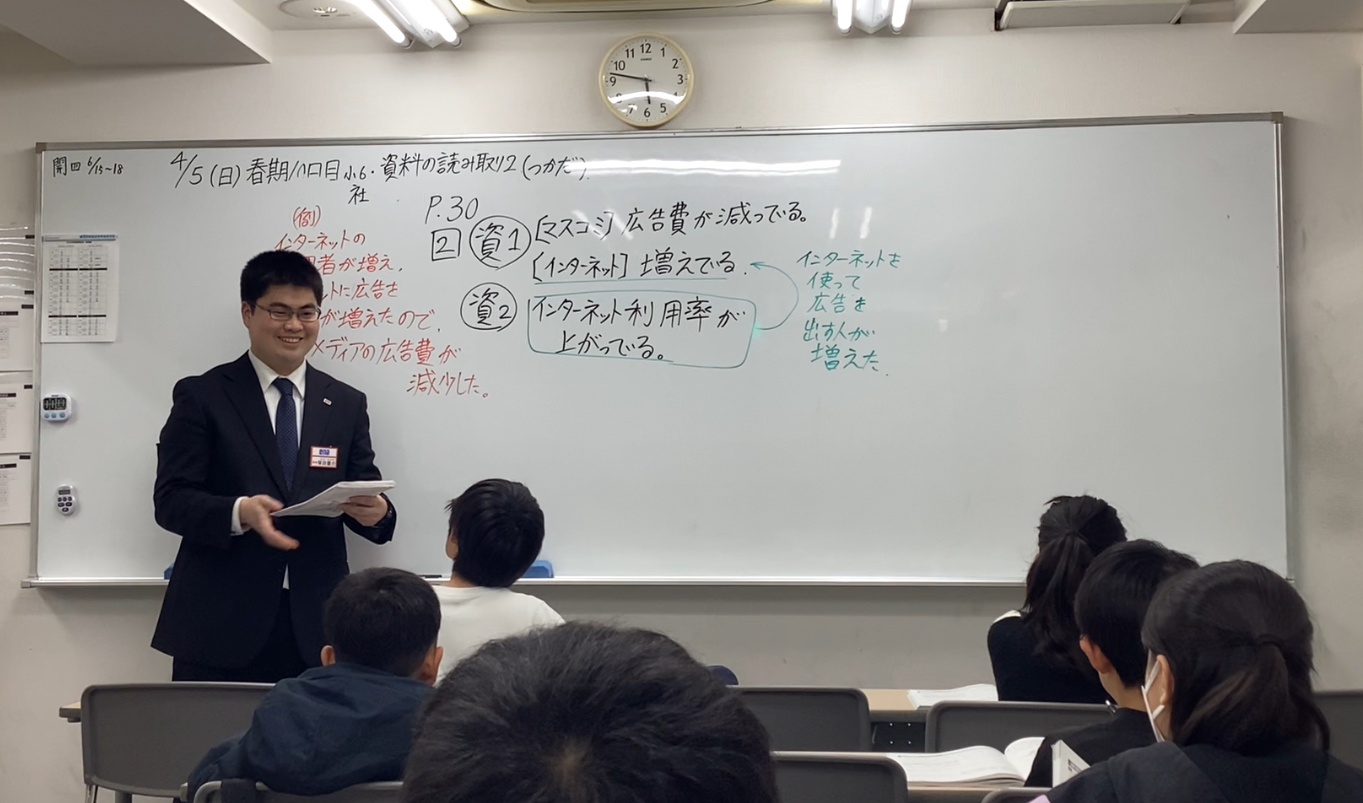 開四 6/15~18
4/5(日)春期八口目 小6・資料の読み取り2(つかだ)
社
P.30
(例)
インターネットの
用者が増え、
トに広告を
が増えたので、
メディアの広告費が
減少した。
2 資1 [マスコミ]広告費が減っている。
[インターネット]増えでる.
資2 インターネット利用率が
上がっている。
インターネットを
使って
広告を
出す人が
増えた.
11 12 1
10 2
9 3
5
6